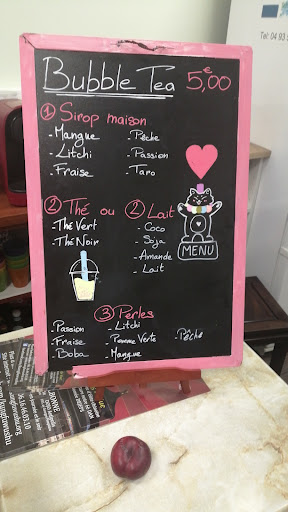 Tel: 04 93
Bubble Tea 5,00€
① Sirop maison
- Mangue
- Pêche
- Litchi
- Passion
- Fraise
- Taro
② Thé ou ② Lait
- Thé Vert
- Thé Noir
- Coco
- Soja
- Amande
- Lait
MENU
③ Perles
- Passion
- Litchi
- Fraise
- Pomme Verte
- Pêche
- Boba
- Mangue